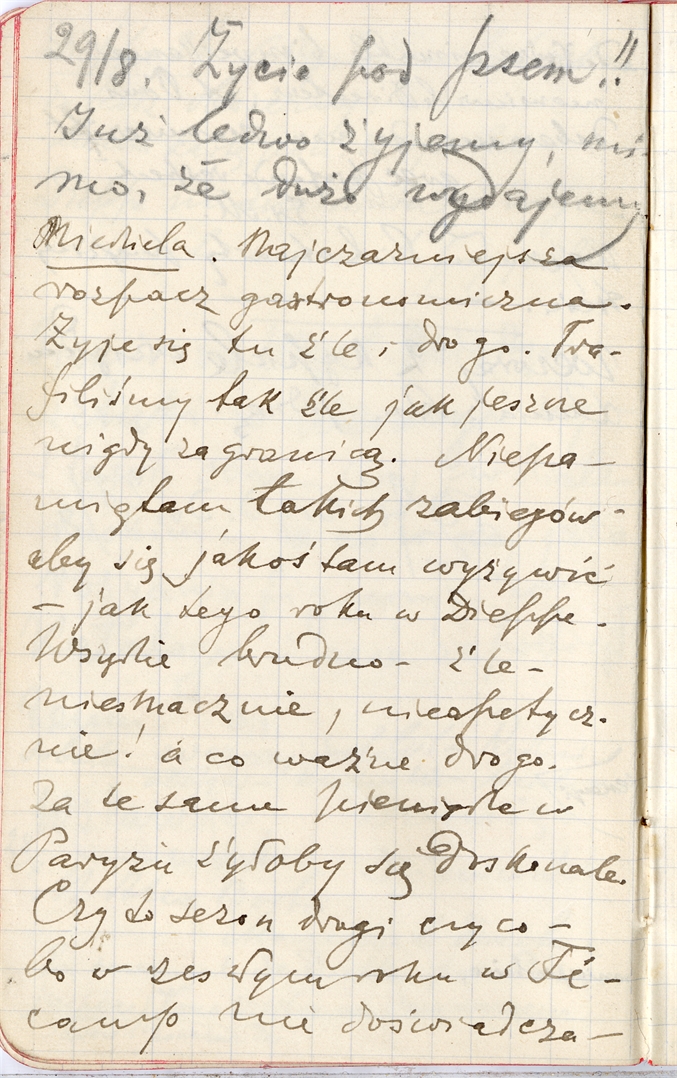 29/8. Życie pod psem!!
Już ledwo żyjemy, mi-
mo, że dużo wydajemy
Niedziela. Najczarniejsza
rozpacz gastronomiczna.
Żyje się tu źle i drogo. Tra-
filiśmy tak źle jak jeszcze
nigdy zagranicą. Niepa-
miętam takich zabiegów-
aby się jakoś tam wyżywić
- jak tego roku w Dieppe.
Wszędzie brudno - źle -
niesmacznie, nieapetycz-
nie! a co ważne drogo.
Za te same pieniądze w
Paryżu żyłoby się doskonale.
Czy to sezon drogi czy co -
bo w zeszłym roku w Fé-
camp nie doświadcza-